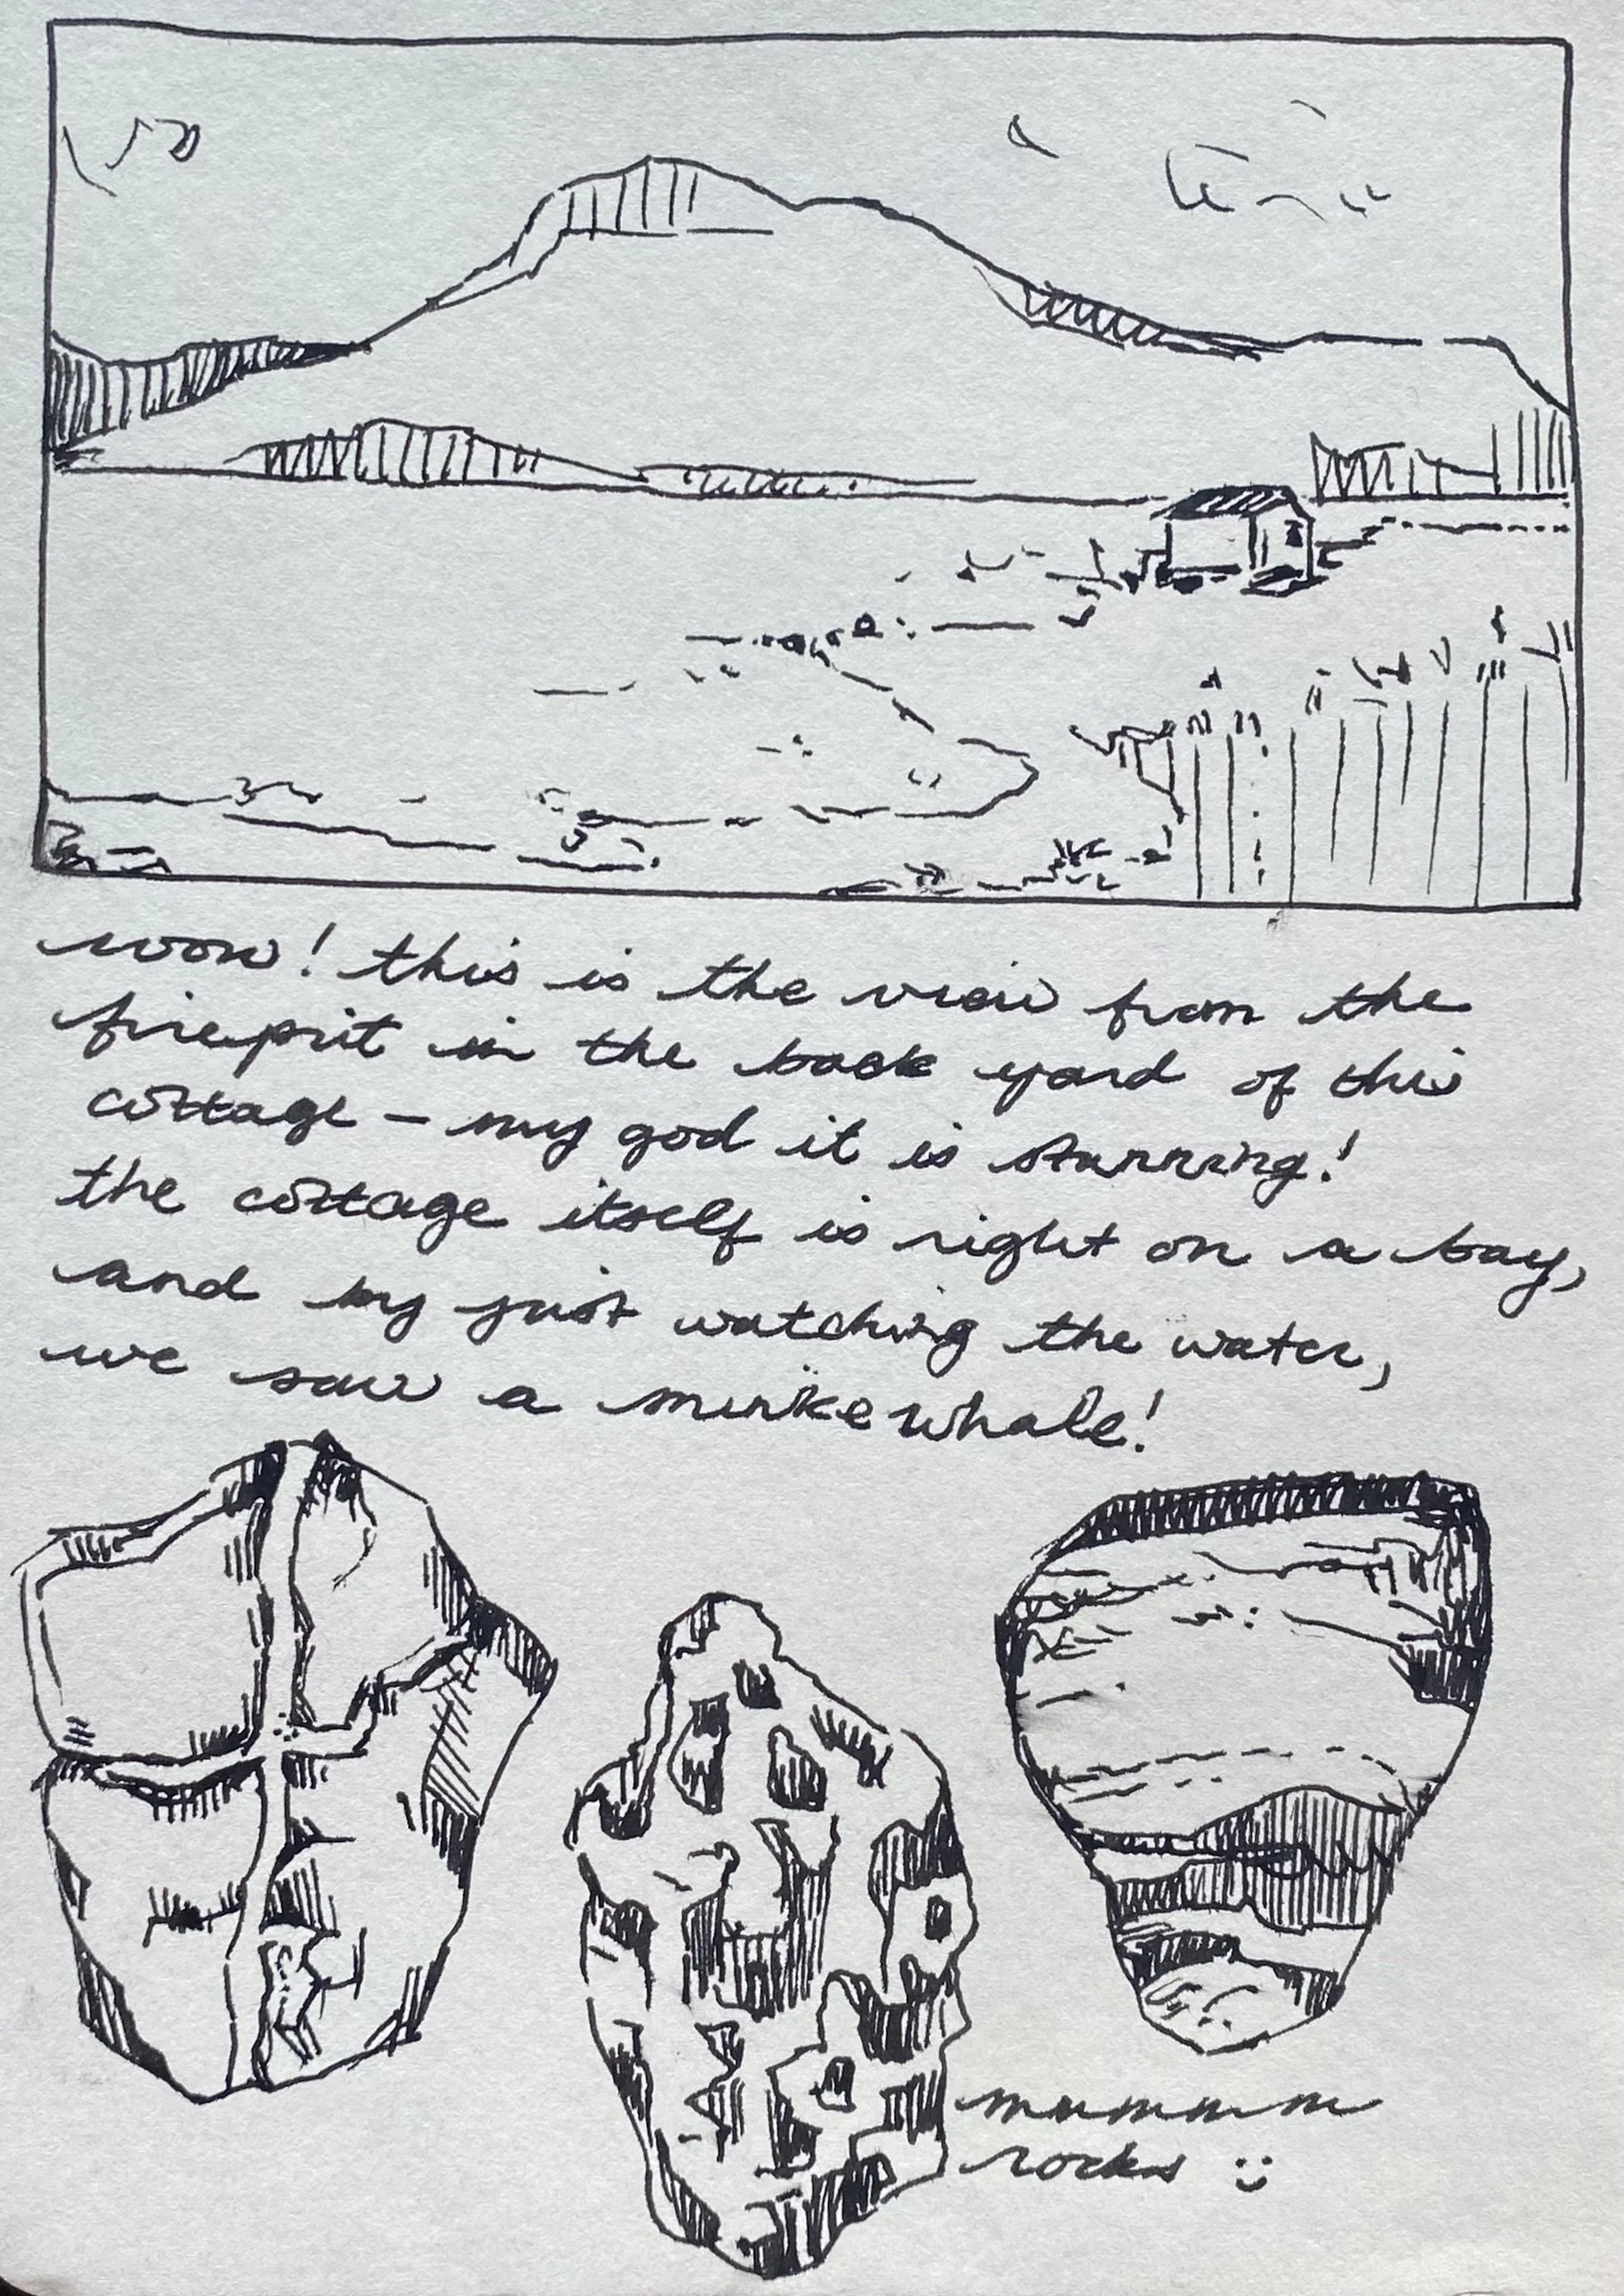 wow! this is the view from the
firepit in the back yard of this
cottage – my god it is stunning!
the cottage itself is right on a bay,
and by just watching the water,
we saw a minke whale!
mmmmm
rocks :)